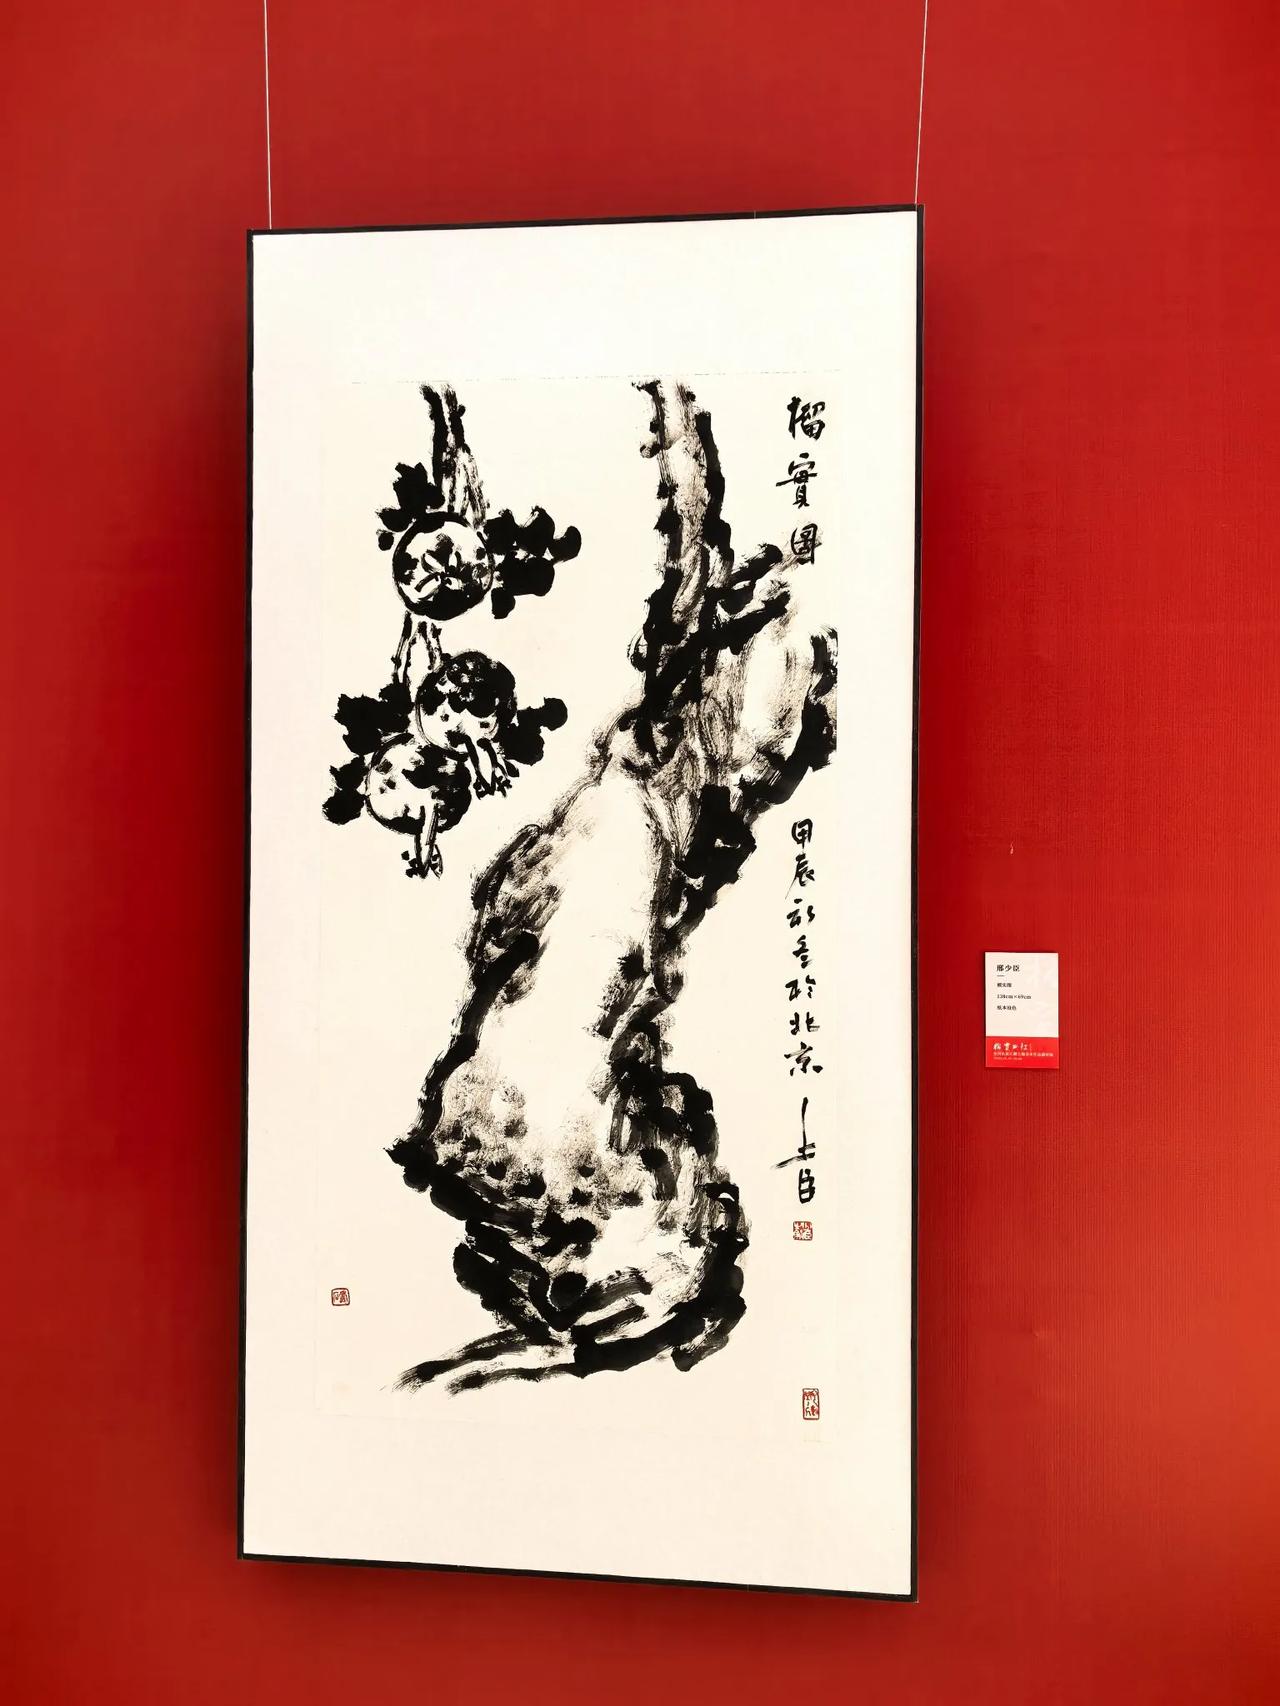 榴實圖
甲辰初冬於北京
少臣
邢少臣
榴实图
138cm×69cm
纸本设色